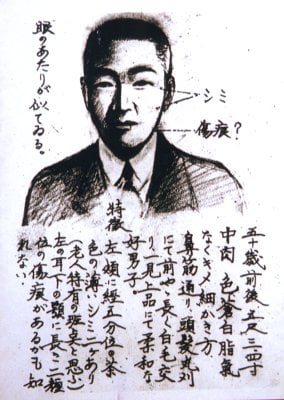 眼のあたりが似てゐる。
シミ
傷痕?
五十歳前後五尺三四寸
中肉 色蒼白脂氣
なくキメ細かき方、
鼻筋通り、頭髪 刈
にて前やゝ長く白毛交
り一見上品にて柔和な
好男子。
特徴
左頬に経五分位の茶
色の薄いシミ二ケあり
(老人特有の斑点と思ふ)
左の耳下の顎に長さ二糎
位の傷痕があるかも知
れない